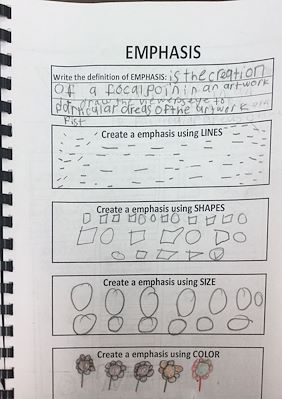 EMPHASIS
Write the definition of EMPHASIS: is the creation
of a focal poin in an artwork
draw the viewers eye to
particular areas of the artwork
Fist
Create a emphasis using LINES
Create a emphasis using SHAPES
Create a emphasis using SIZE
Create a emphasis using COLOR